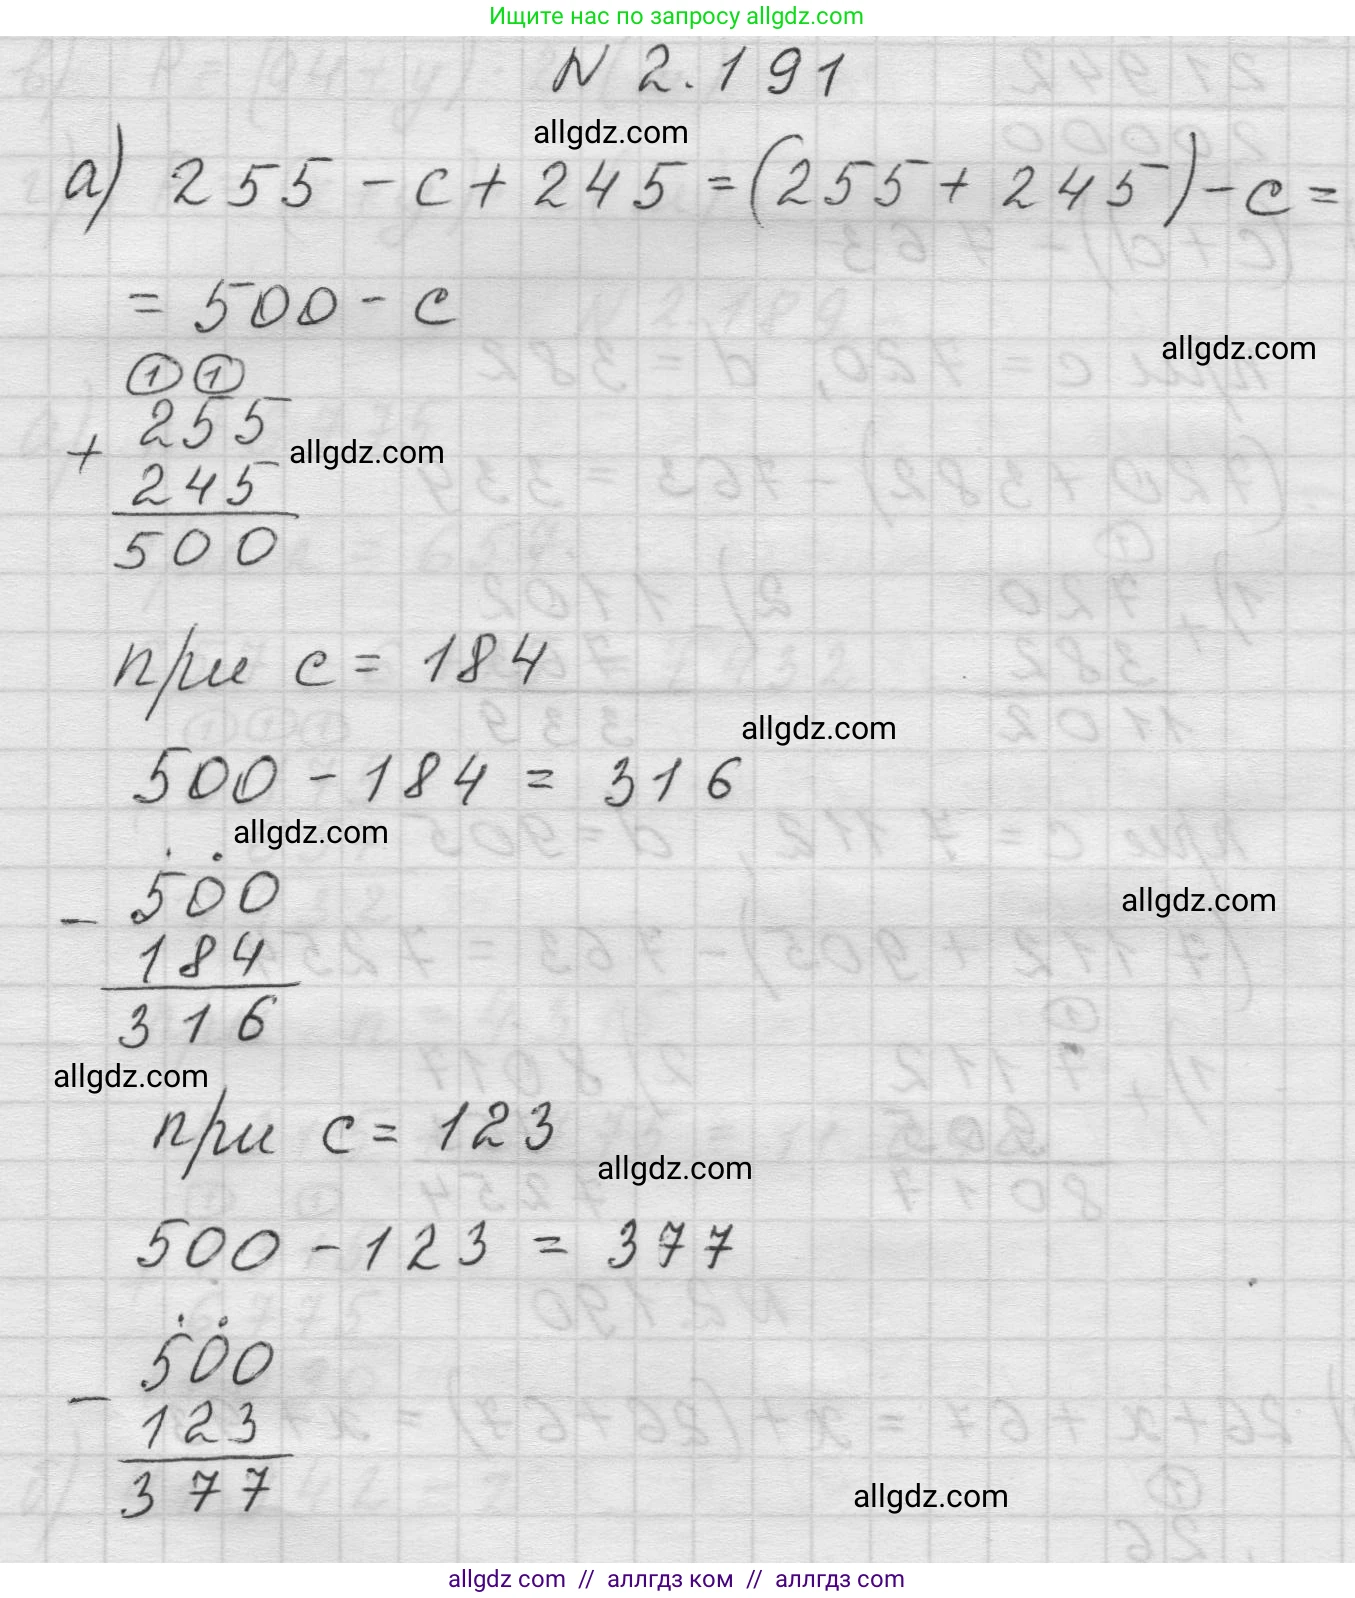 Ищите нас по запросу allgdz.com
N 2.191
allgdz.com
а) 255 - c + 245 = (255 + 245) - c =
= 500 - c
allgdz.com
1 1
+ 255
allgdz.com
245
500
при c = 184
allgdz.com
500 - 184 = 316
allgdz.com
- 500
allgdz.com
184
316
allgdz.com
при c = 123
allgdz.com
500 - 123 = 377
- 500
123
377
allgdz.com
allgdz com // аллгдз ком // аллгтз com